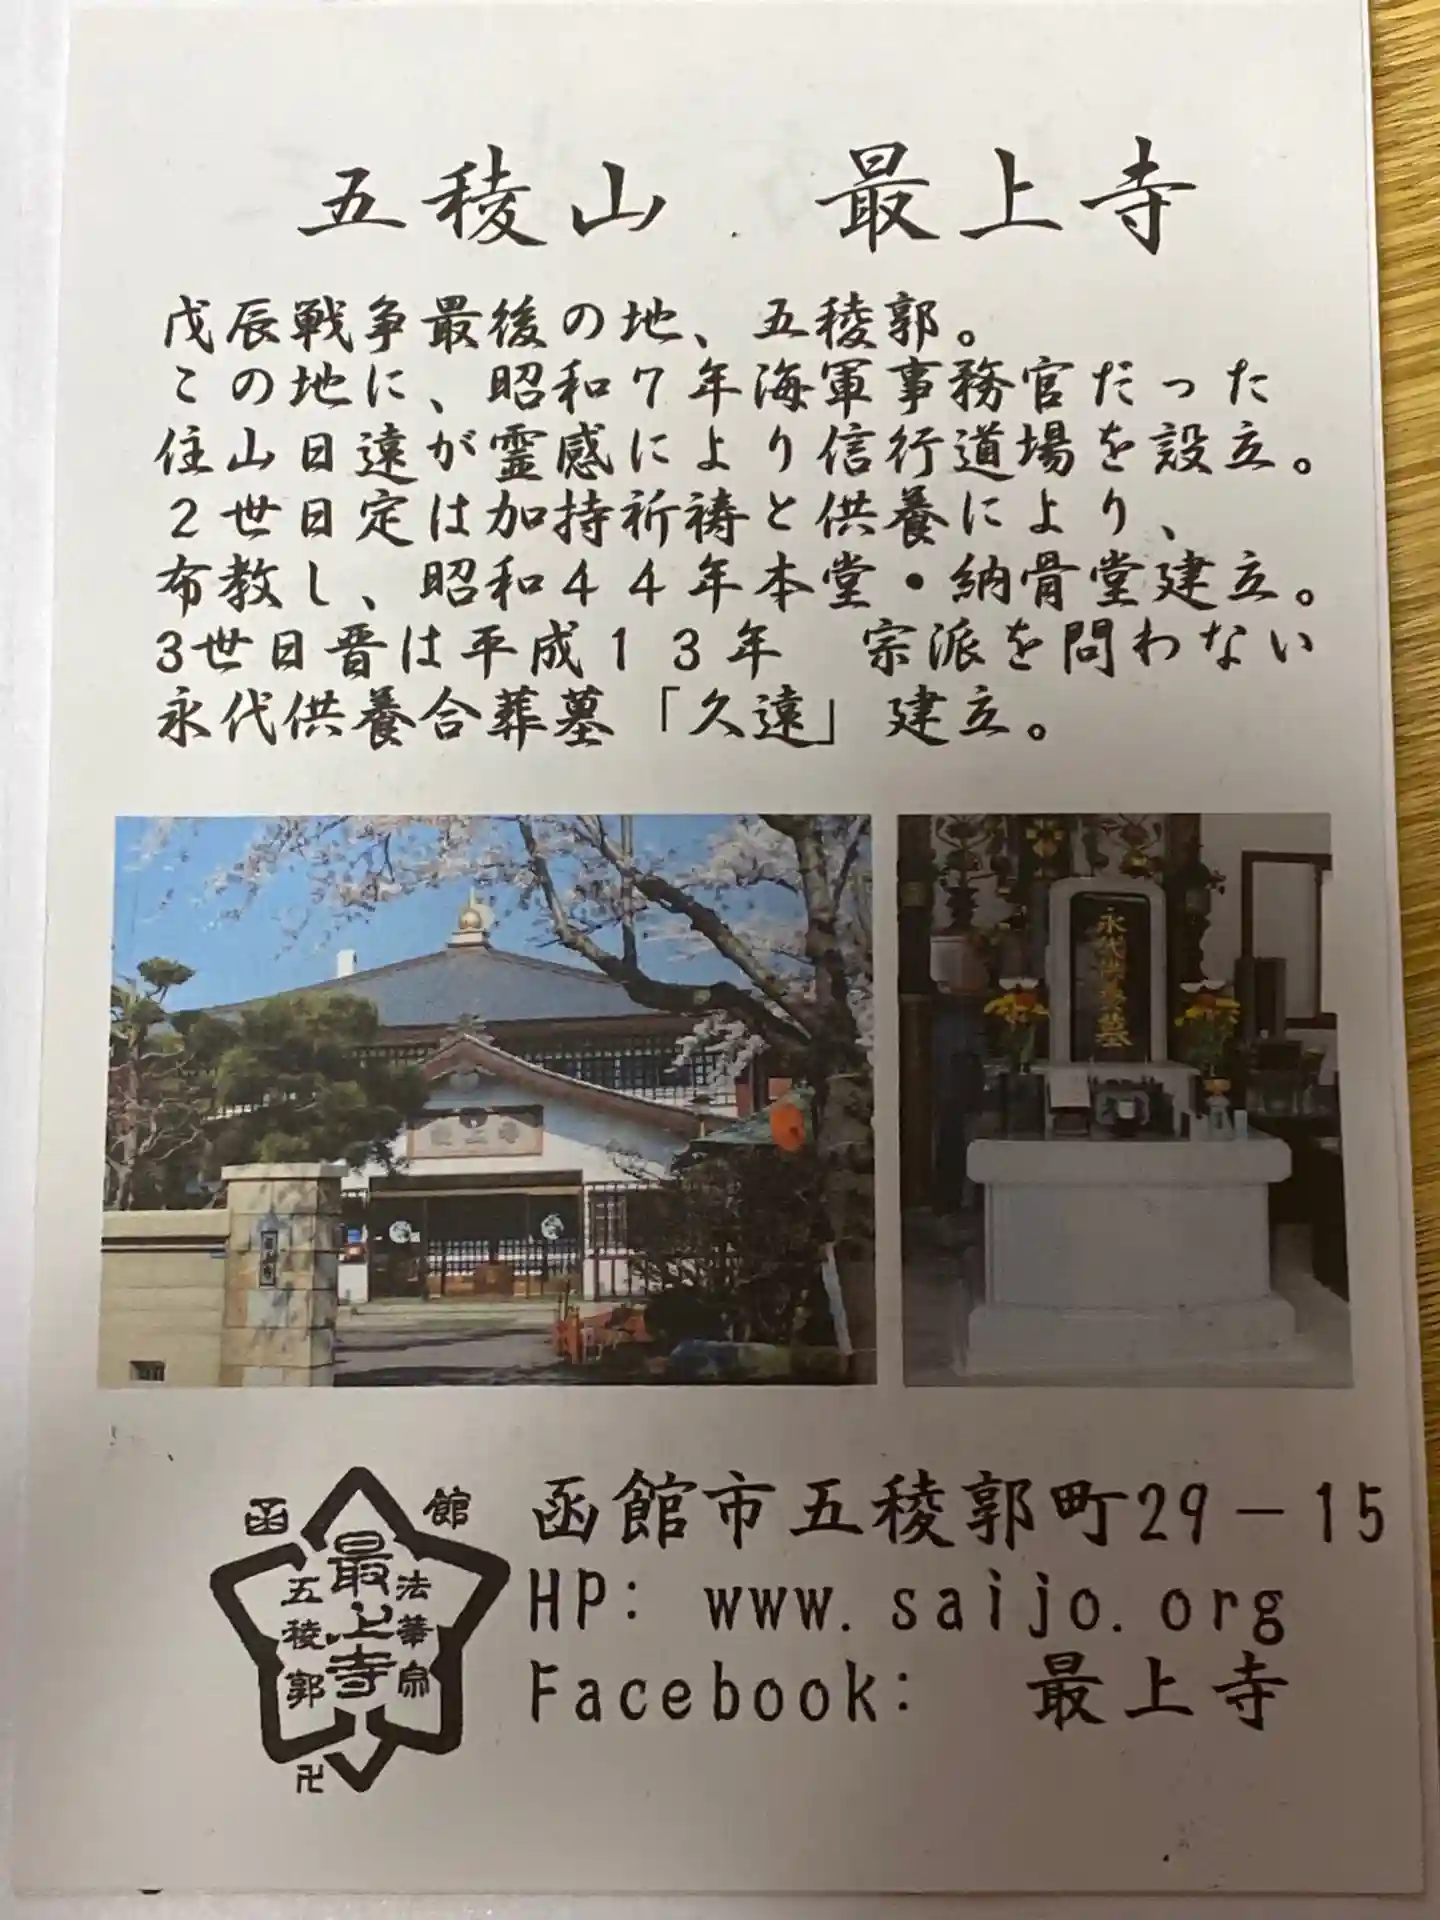 五稜山 最上寺
戊辰戦争最後の地、五稜郭。
この地に、昭和7年海軍事務官だった
住山日遠が霊感により信行道場を設立。
2世日定は加持祈祷と供養により、
布教し、昭和44年本堂・納骨堂建立。
3世日晋は平成13年 宗派を問わない
永代供養合葬墓「久遠」建立。
最上寺
永代供養墓
函館
最上寺
法華宗
五稜郭
卍
函館市五稜郭町29-15
HP: www.saijo.org
Facebook: 最上寺